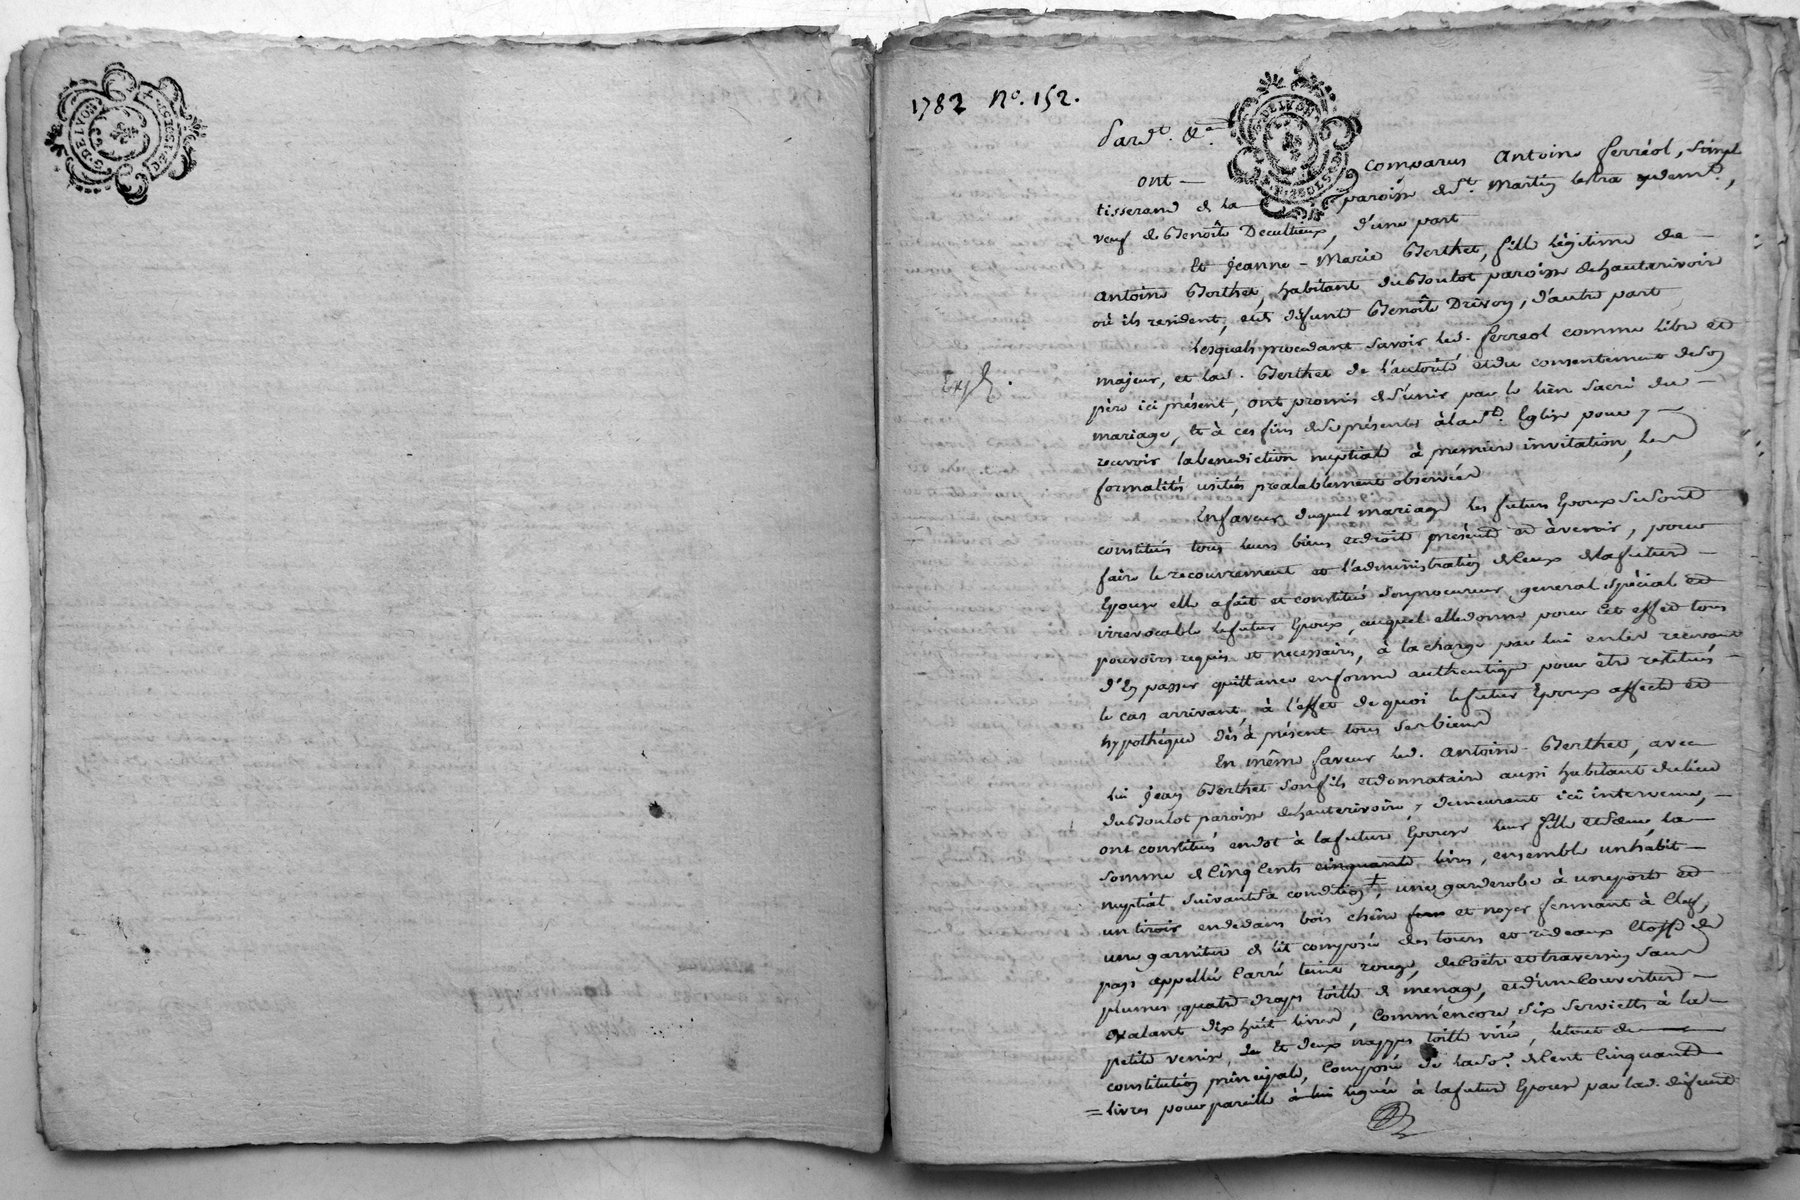 1782 No. 152.
Pard.t &.a
ont — comparus Antoine ferréol, simple
tisserand de la paroisse de St. Martin Lestra y demt.,
veuf de Benoîte Decultieux, d'une part
Et Jeanne-Marie Berthet, fille légitime de —
Antoine Berthet, habitant du Boulot paroisse de hauterivoire
où ils resident, et de défunte Benoîte Drivon, d'autre part
Lesquels procedant savoir led. ferreol comme libre et
majeur, et lad. Berthet de l'autorité et du consentement de son
père ici présent, ont promis de s'unir par le lien sacré du —
mariage, et à ces fins de se présenter à la ste. Eglise pour y —
recevoir la benediction nuptiale à premiere invitation, les
formalités usitées préalablement observées
En faveur duquel mariage les futurs Epoux se sont
constitués tous leurs biens et droits présents et à venir, pour
faire le recouvrement et l'administration de ceux de la future —
Epouse elle a fait et constitué son procureur general spécial et
irrevocable le futur Epoux, auquel elle donne pour cet effet tous
pouvoirs requis et necessaires, à la charge par lui en les recevant
d'en passer quittance en forme authentique pour être restitués —
le cas arrivant, à l'effet de quoi le futur Epoux affecte et
hypothéque dès à présent tous ses biens
En même faveur led. Antoine Berthet, avec
lui Jean Berthet son fils et donnataire aussi habitant du lieu
du Boulot paroisse de hauterivoire y demeurant ici intervenu, —
ont constitués en dot à la future Epouse leur fille et sœur la —
somme de Cinq Cents cinquante livres, ensemble un habit —
nuptial suivant sa condition ‡, une garderobe à une porte et
un tiroir en dedans bois chêne et noyer fermant à Clef,
une garniture de lit composée des tours et rideaux Etoffe de
pays appellée Carré teint rouge, de Coëtre et traversin sans
plumes, quatre draps toille de menage, et d'une Couverture —
valant dix huit livres, comm'encore six serviettes à la —
petite venise, et deux nappes toille virée, le tout de —
constitution principale, Composée de lad. so.e de Cent Cinquante
= livres pour pareille léguée à la future Epouse par lad. défunte
Exp.é.